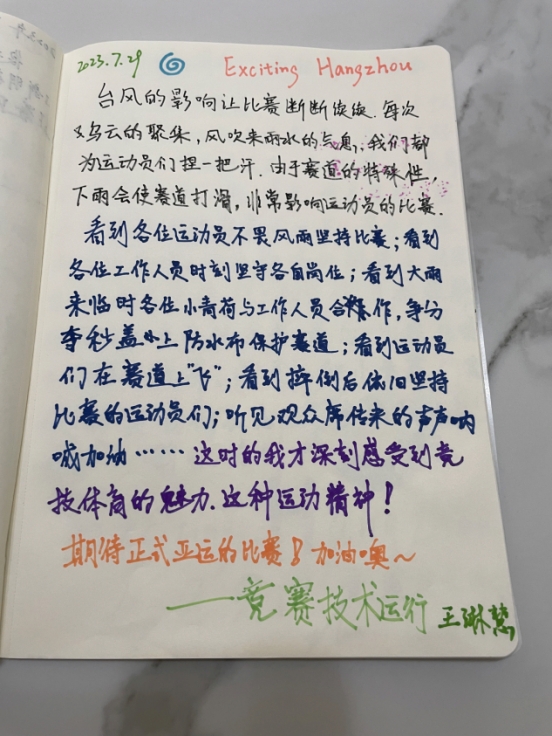 2023.7.29 Exciting Hangzhou
台风的影响让比赛断断续续.每次
乌云的聚集,风吹来雨水的气息,我们都
为运动员们捏一把汗.由于赛道的特殊性,
下雨会使赛道打滑,非常影响运动员的比赛.
看到各位运动员不畏风雨坚持比赛;看到
各位工作人员时刻坚守各自岗位;看到大雨
来临时各位小青荷与工作人员合作,争分
夺秒盖上防水布保护赛道;看到运动员
们在赛道上"飞";看到摔倒后依旧坚持
比赛的运动员们;听见观众席传来的声声呐
喊加油……这时的我才深刻感受到竞
技体育的魅力.这种运动精神!
期待正式亚运的比赛!加油噢~
——竞赛技术运行 王琳慧